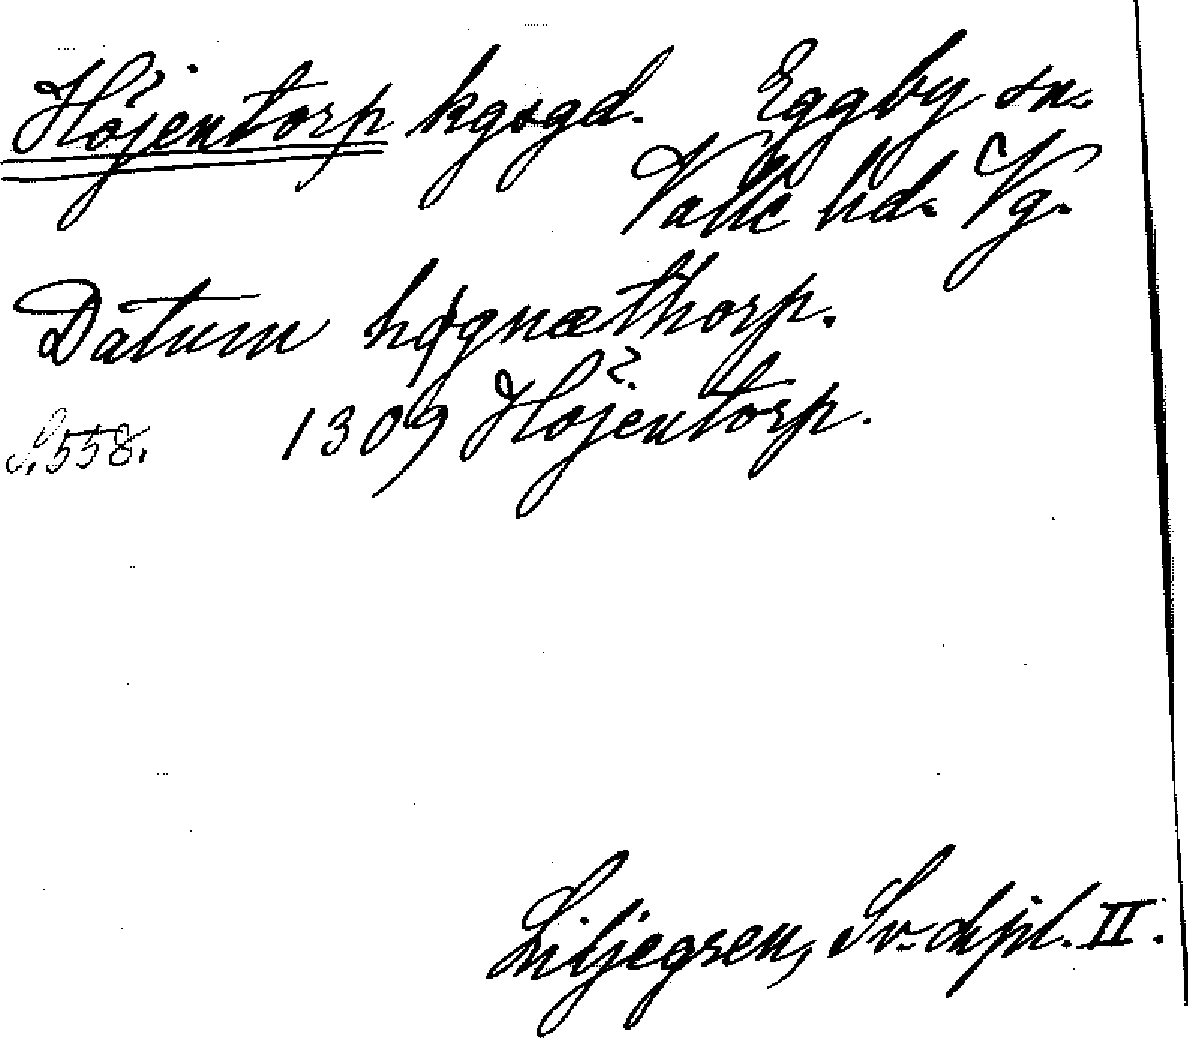 Höjentorp kgsgd. Eggby sn.
Valle hd. Vg.
Datum høgnæthorp.
?
S. 558. 1309 Höjentorp.
Liljegren, Sv. dipl. II.